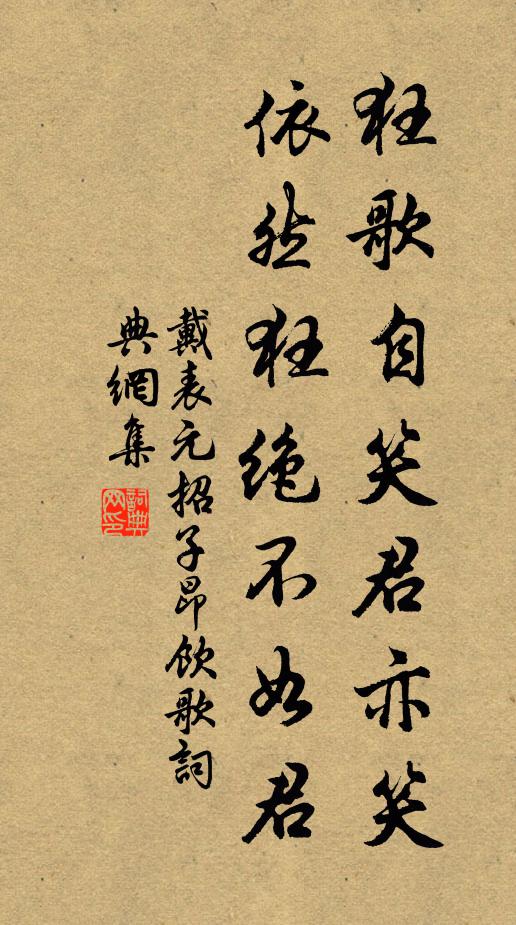 狂歌自笑君亦笑
依然狂絶不如君
戴表元招子昂飲歌詞
典網集
詞典網印